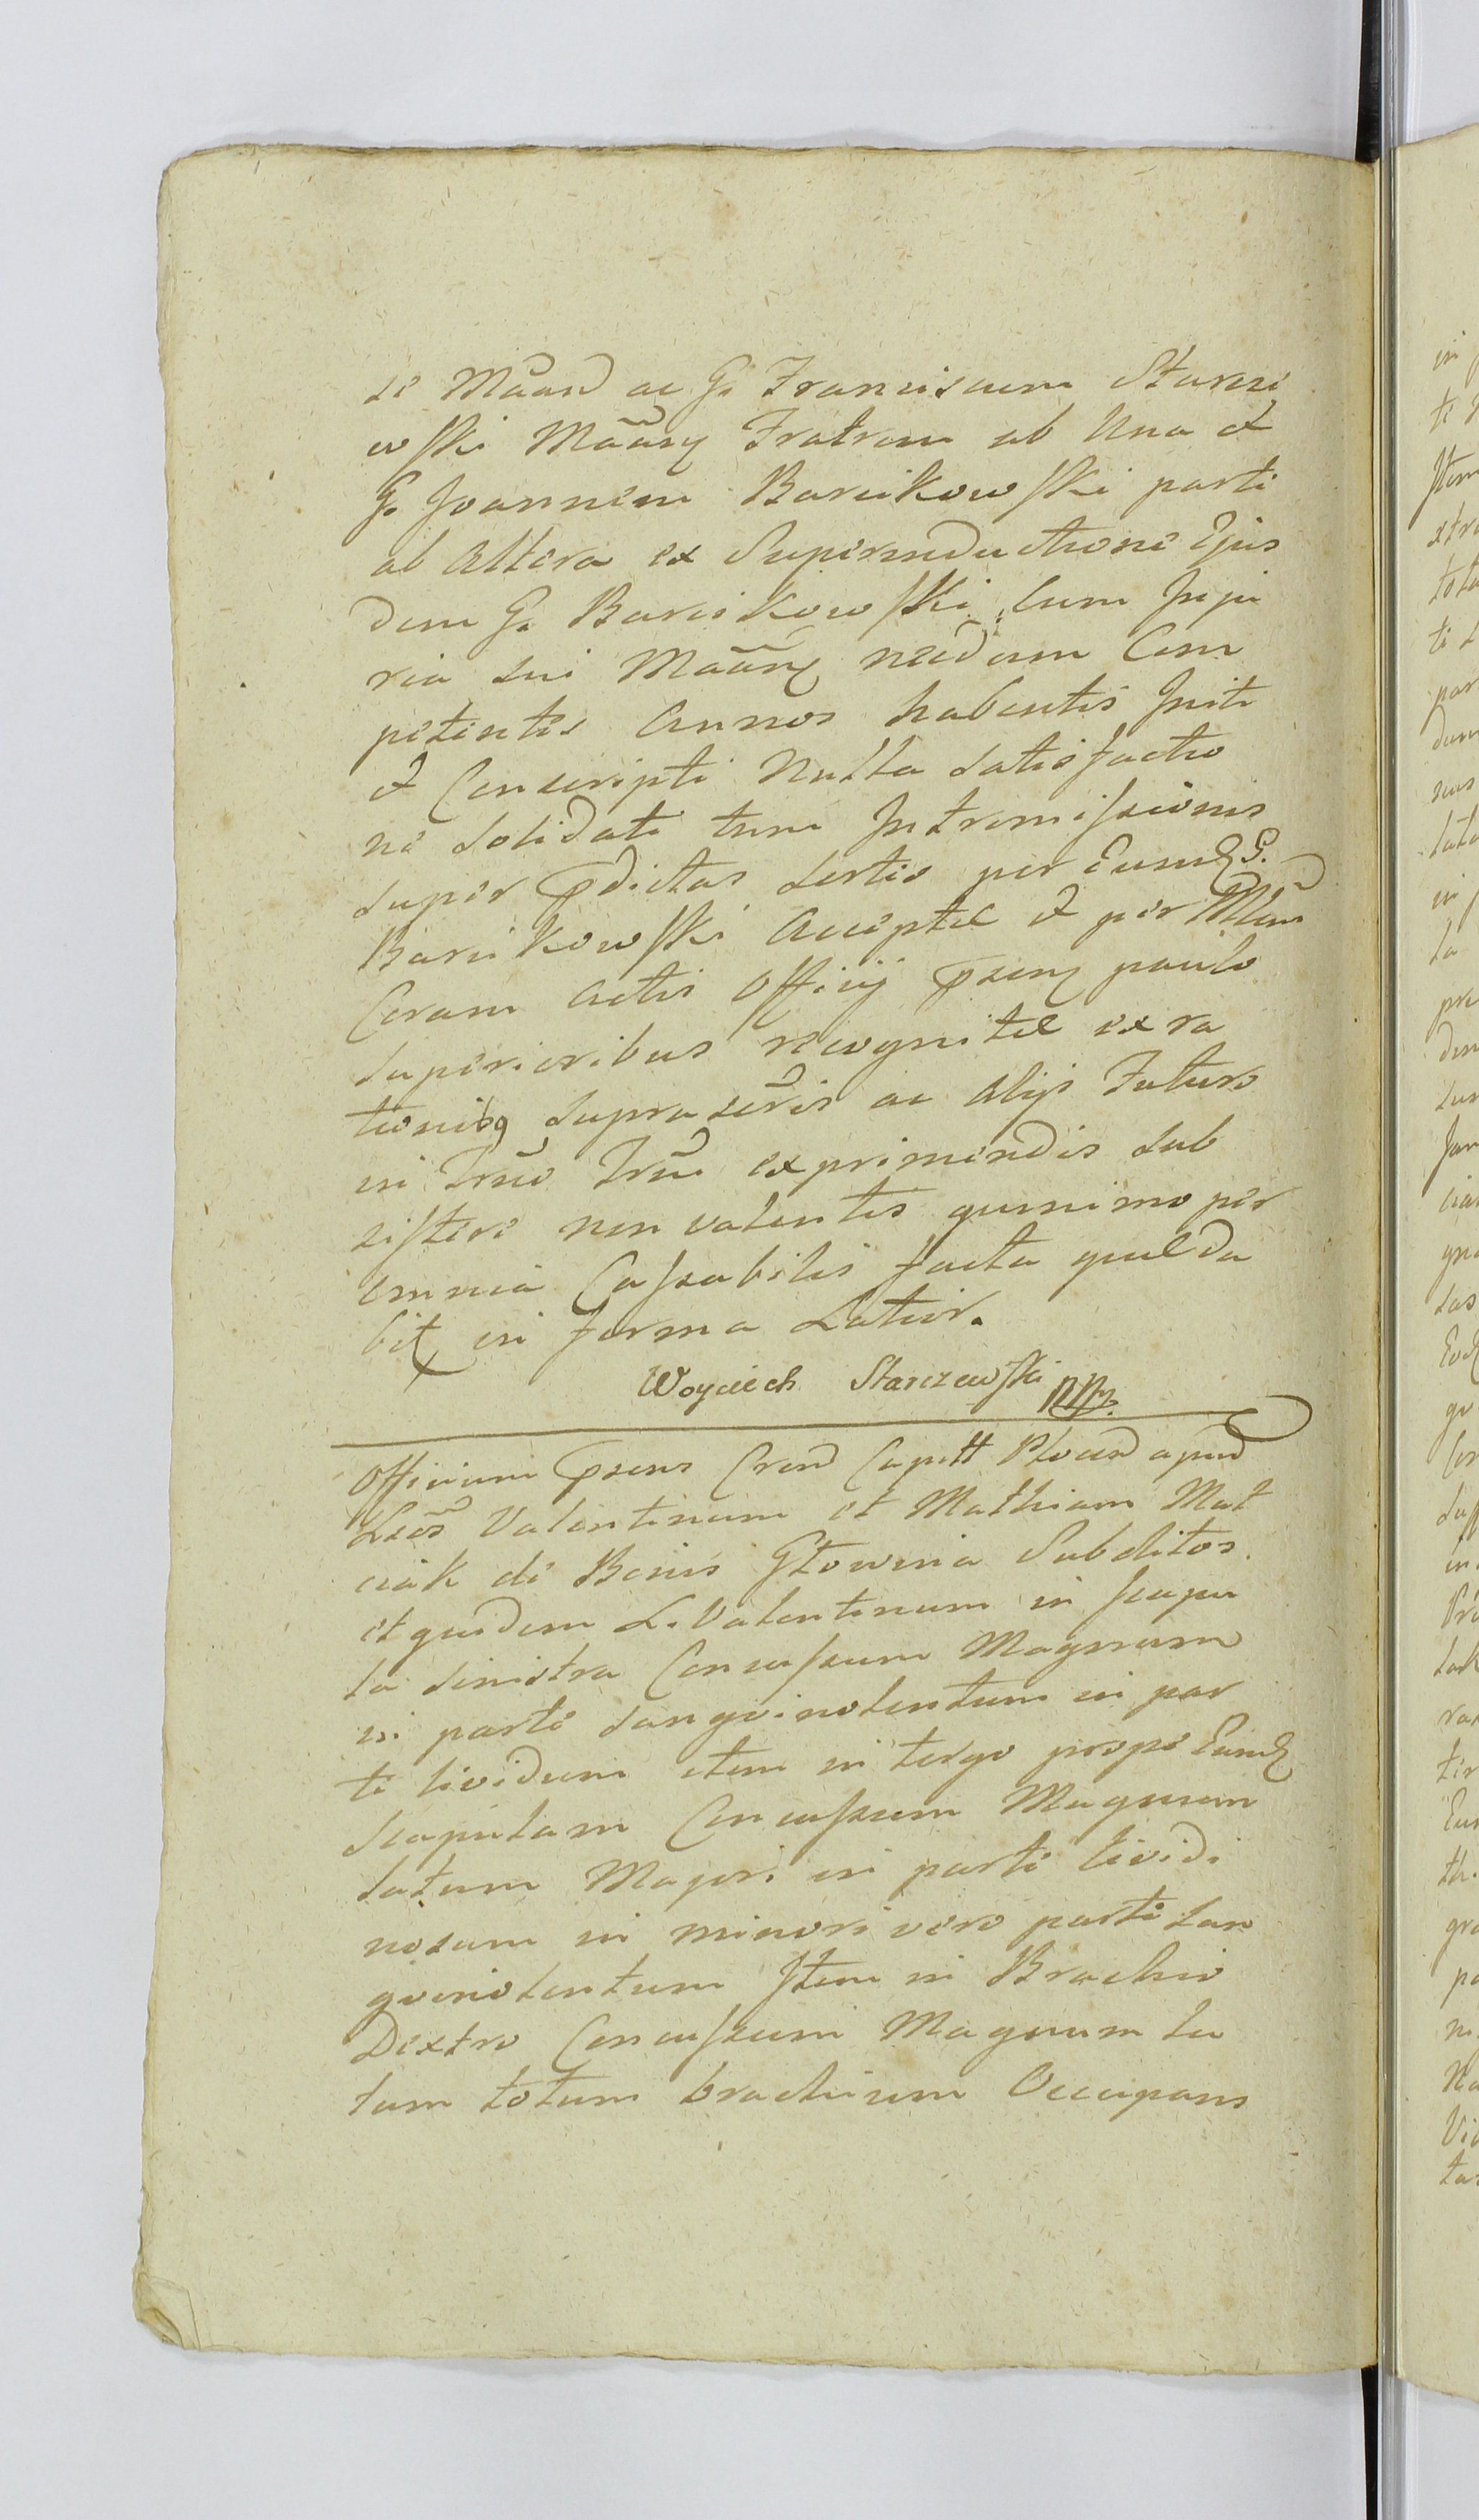 se Mãand ac G. Franciscum Starcze
wski Mãanz Fratrem ab Una et
G. Joannem Barcikowski parte
ab Altera ex Superinductione Ejus
dem G. Barcikowski cum Inju
ria sui Mãanz necdum Com
petentes Annos habentis Initi
et Conscripti Nulla satisfactio
ne solidati tum Intromissionis
super p̄dictas sortes per Eund G.
Barcikowski Acceptæ et per Mland
Coram Actis Officij p̄senz paulo
superioribus recognitæ ex ra
tionibq suprascr̃is ac Alijs Futuro
in Tr̃no Tr̃ni exprimendis sub
sistere non valentes quinimo per
omnia Cassabilis facta quæ da
bit in forma Latior.
Woyciech Starczewski mp.
Officium p̄sens Crend Capitt Plocen apud
Lãos Valentinum et Mathiam Mat
ciak de Bonis Głowina Subditos
et quidem L. Valentinum in scapu
la sinistra Concussum Magnum
in parte sangvinolentum in par
te lividum item in tergo prope Eand
scapulam Concussum Magnum
latum Majori in parte livedi
nosum in minori vero parte san
gvinolentum Item in Brachio
Dextro Concussum Magnum la
tum totum brachium Occupans